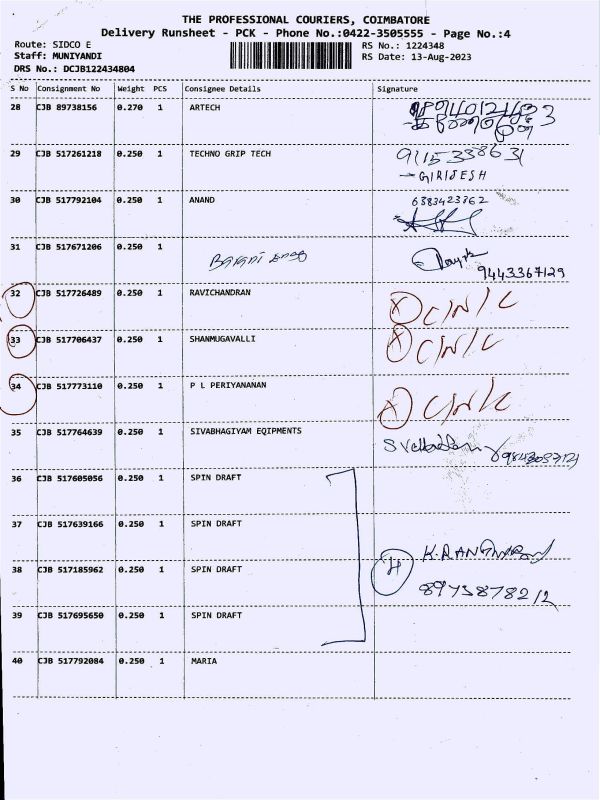 THE PROFESSIONAL COURIERS, COIMBATORE
Delivery Runsheet - PCK - Phone No.:0422-3505555 - Page No.:4
Route: SIDCO E RS No.: 1224348
Staff: MUNIYANDI RS Date: 13-Aug-2023
DRS No.: DCJB122434804
S No Consignment No Weight PCS Consignee Details Signature
28 CJB 89738156 0.270 1 ARTECH
29 CJB 517261218 0.250 1 TECHNO GRIP TECH 9115338631
- GIRIJESH
30 CJB 517792104 0.250 1 ANAND 6383423862
31 CJB 517671206 0.250 1
9443367129
32 CJB 517726489 0.250 1 RAVICHANDRAN X C/N/C
33 CJB 517706437 0.250 1 SHANMUGAVALLI X C/N/C
34 CJB 517773110 0.250 1 P L PERIYANANAN X C/N/C
35 CJB 517764639 0.250 1 SIVABHAGIYAM EQIPMENTS
36 CJB 517605056 0.250 1 SPIN DRAFT
37 CJB 517639166 0.250 1 SPIN DRAFT
38 CJB 517185962 0.250 1 SPIN DRAFT H
8973878212
39 CJB 517695650 0.250 1 SPIN DRAFT
40 CJB 517792084 0.250 1 MARIA